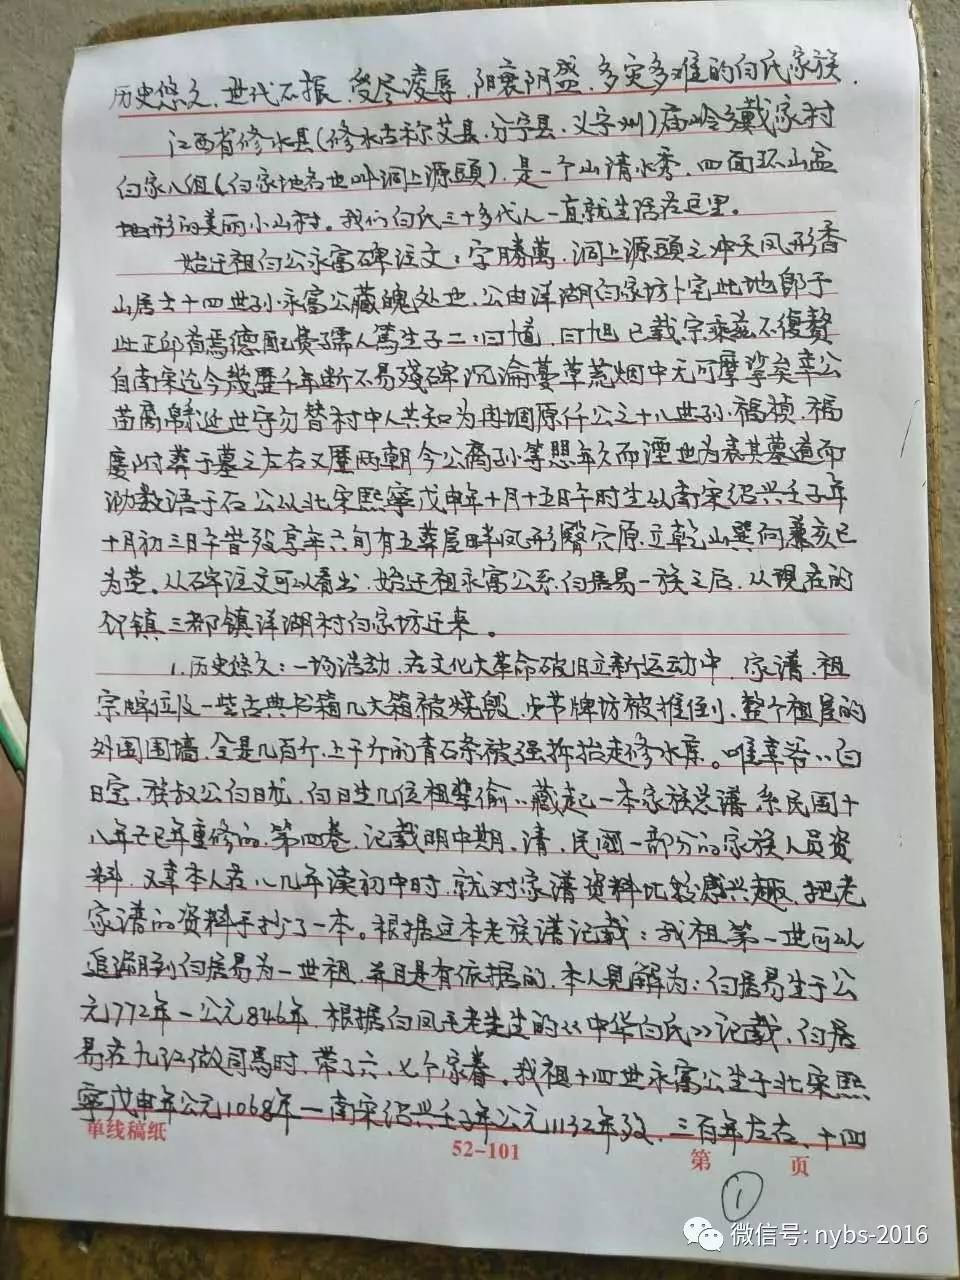 历史悠久,世代不振,受尽凌辱,阳衰阴盛,多灾多难的白氏家族.
江西省修水县(修水古称艾县,分宁县,义宁州)庙岭乡戴家村
白家八组(白家地名也叫洞上源頭),是一个山清水秀,四面环山盆
地形的美丽小山村。我们白氏三十多代人一直就生活在这里。
始迁祖白公永富碑注文:字勝萬,洞上源頭之冲天凤形香
山居士十四世孙永富公藏魄处也,公由洋湖白家坊卜宅此地郎于
此正邱首焉德配黄孺人篤生子二:曰 曰旭已载宗乘兹不復贅
自南宋迄今幾歷千年断不易殘碑沉淪蔓草荒烟中无可摩挲矣幸公
苗裔 世守勿替村中人共知为 公之十八世孙福禎,福
慶附葬于墓之左右又歷两朝今公裔孙等懇年久而湮也为表其墓道而
泐数语于石公以北宋熙寧戊申年十月十五日午时生以南宋绍兴壬子年
十月初三日午 殁享年六旬有五葬屋畔凤形臀穴原立乾山巽向兼亥巳
为茔。从碑注文可以看出,始迁祖永富公系白居易一族之后,从现在的
邻镇三都镇洋湖村白家坊迁来。
1.历史悠久:一场浩劫,在文化大革命破旧立新运动中,家谱,祖
宗牌位及一些古典书籍几大箱被烧毁,贞节牌坊被推倒,整个祖屋的
外围围墙,全是几百斤,上千斤的青石条被强拆抬走修水库。唯幸爷爷白
日宝,族叔公白日龙,白日生几位祖辈偷偷藏起一本家族老谱,系民国十
八年己巳年重修的,第四卷,记载明中期,清,民國一部分的家族人员资
料,又幸本人在八几年读初中时,就对家谱资料比较感兴趣,把老
家谱的资料手抄了一本。根据这本老族谱记载:我祖第一世可以
追溯到白居易为一世祖,并且是有依据的,本人見解为:白居易生于公
元772年一公元846年,根据白凤毛老先生的《中华白氏》记载,白居
易在九江做司馬时,带了六、七个家眷。我祖十四世永富公生于北宋熙
寧戊申年公元1068年一南宋绍兴壬子年公元1132年殁,三百年左右,十四
单线稿纸
52-101
第 页
①
微信号: nybs-2016